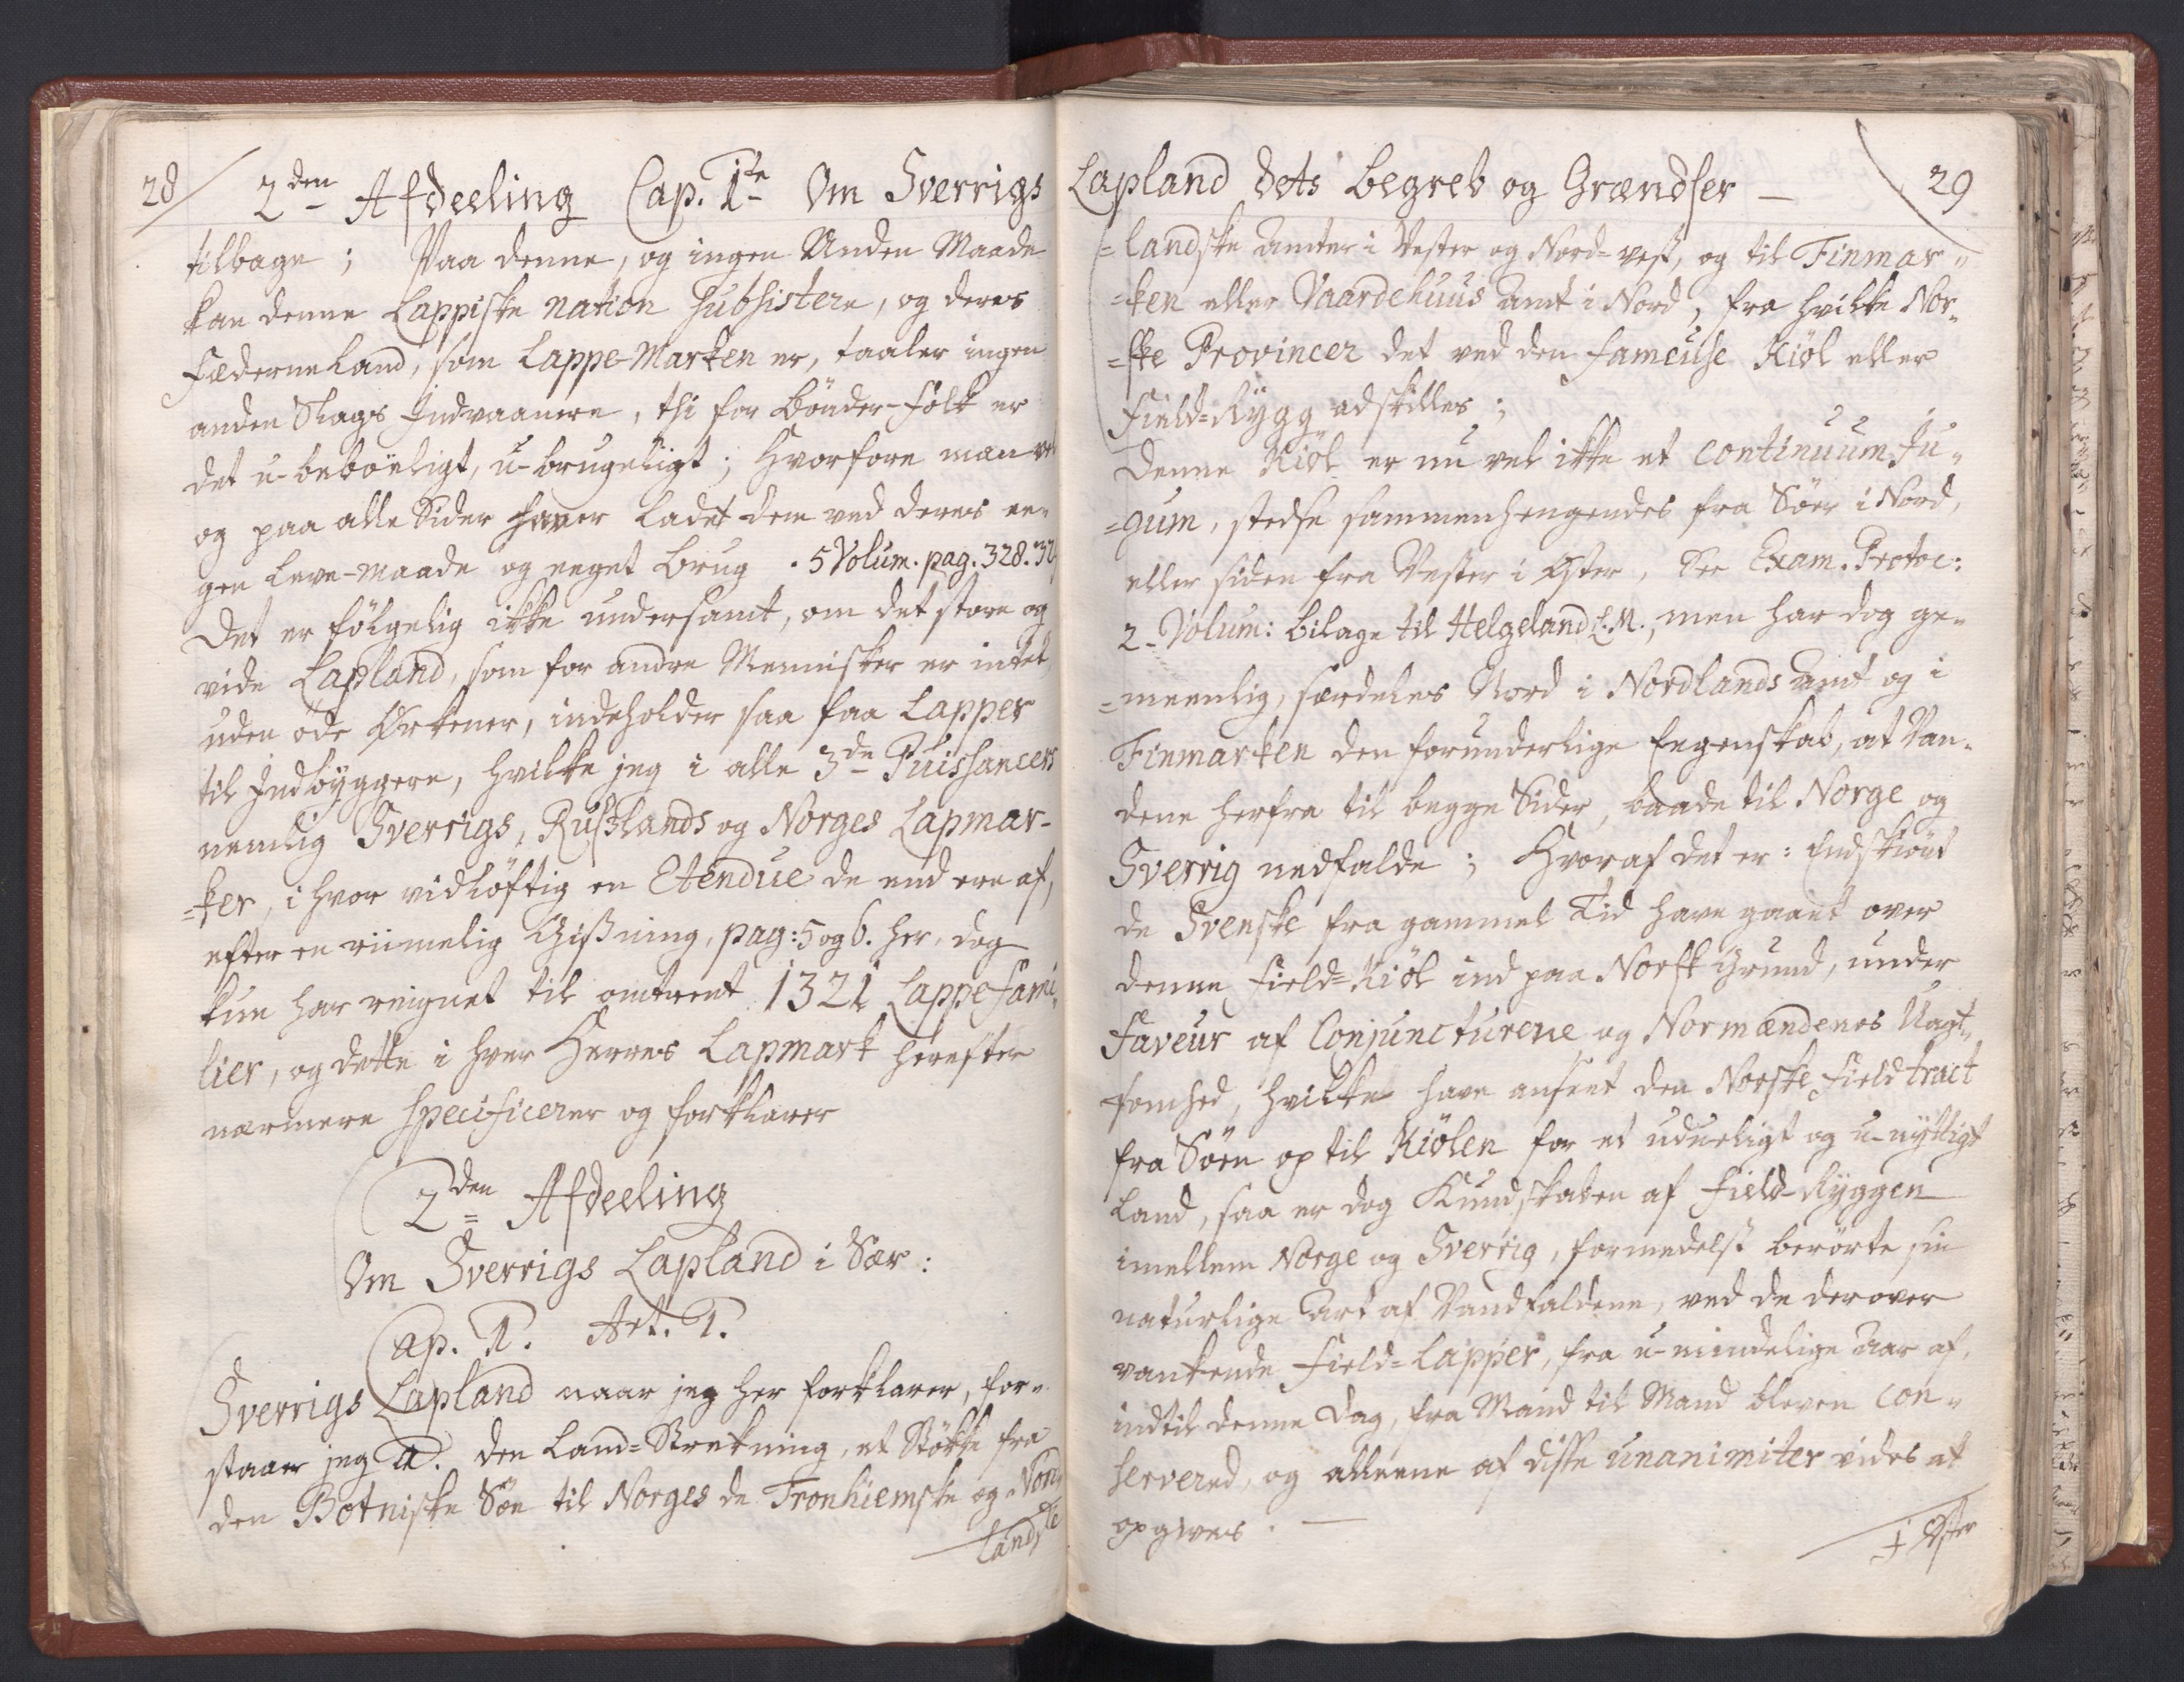 28
2den Afdeeling Cap. 1te Om Sverrigs
tilbage; Paa denne, og ingen Anden Maade
kan denne Lappiske Nation subsistere, og deres
Fæderneland, som Lappe-Marken er, taaler ingen
anden Slags Indvaanere, thi for Bönder-folk er
det u-beböeligt, u-brugeligt; Hvorfore man
og paa alle Sider haver ladet dem ved deres ee-
gen Leve-maade og eeget Brug. 5 Volum. pag. 328.
Det er fölgelig ikke undersamt, om det store og
vide Lapland, som for andre Mennisker er intet
uden öde Örkener, indeholder saa faa Lapper
til Indbyggere, hvilke jeg i alle 3de Puissancers
nemlig Sverrigs, Russlands og Norges Lapmar-
=ker, i hvor vidlöftig en Etendue de end ere af,
efter en riimelig Gissning, pag: 5 og 6. her, dog
kun har reignet til omtrent 1321 Lappe fami-
lier, og dette i hver Herres Lapmark herefter
nærmere specificerer og forklarer
2den Afdeeling
Om Sverrigs Lapland i Sær:
Cap. 1. Art. 1.
Sverrigs Lapland naar jeg her forklarer, for-
staaer jeg a. den Land-Strekning, et Stökke fra
den Botniske Söe til Norges de Tronhiemske og Nord
landske
Lapland dets begreb og Grændser —
29
=landske Amter i Vester og Nord-vest, og til Finmar-
=ken eller Vaardehuus Amt i Nord, fra hvilke Nor-
=ske Provincer det ved den fameuse Kiöl eller
Field-Rygg adskilles;
Denne Kiöl er nu vel ikke et continuum Ju-
=gum, stedse sammenhengendes fra Söer i Nord,
eller siden fra Vester i Öster, See Exam. Protoc:
2. Volum: bilage til Helgeland L.M., men har dog ge-
=meenlig, særdeles Nord i Nordlands Amt og i
Finmarken den forunderlige Eegenskab, at Van-
dene herfra til begge Sider, baade til Norge og
Sverrig nedfalde; Hvoraf det er: Endskiönt
de Svenske fra gammel Tid have gaaet over
denne Field-Kiöl ind paa Norsk Grund, under
Faveur af Conjuncturene og Normændenes Uagt-
somhed, hvilke have anseet den Norske Field tract
fra Söen op til Kiölen for et udueligt og u-nyttigt
Land, saa er dog Kundskaben af Field-Ryggen
imellem Norge og Sverrig, formedelst berörte sin
naturlige Art af Vandfaldene, ved de derover
vankende Field-Lapper, fra u-mindelige Aar af,
indtil denne Dag, fra Mand til Mand bleven con-
servered, og alleene af disse unanimiter vides at
opgives. —
I Öster